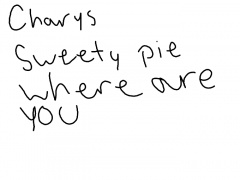 Charys
Sweety pie
where are
YOU